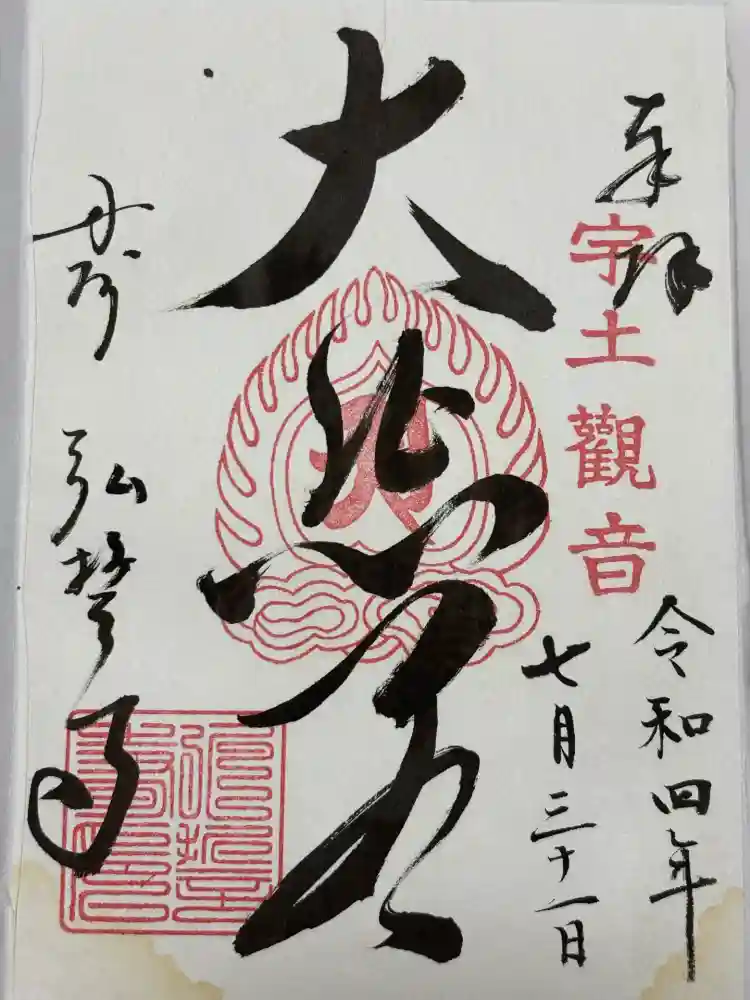 奉拝
宇土觀音
令和四年
七月三十一日
大悲閣
丹州
弘誓寺